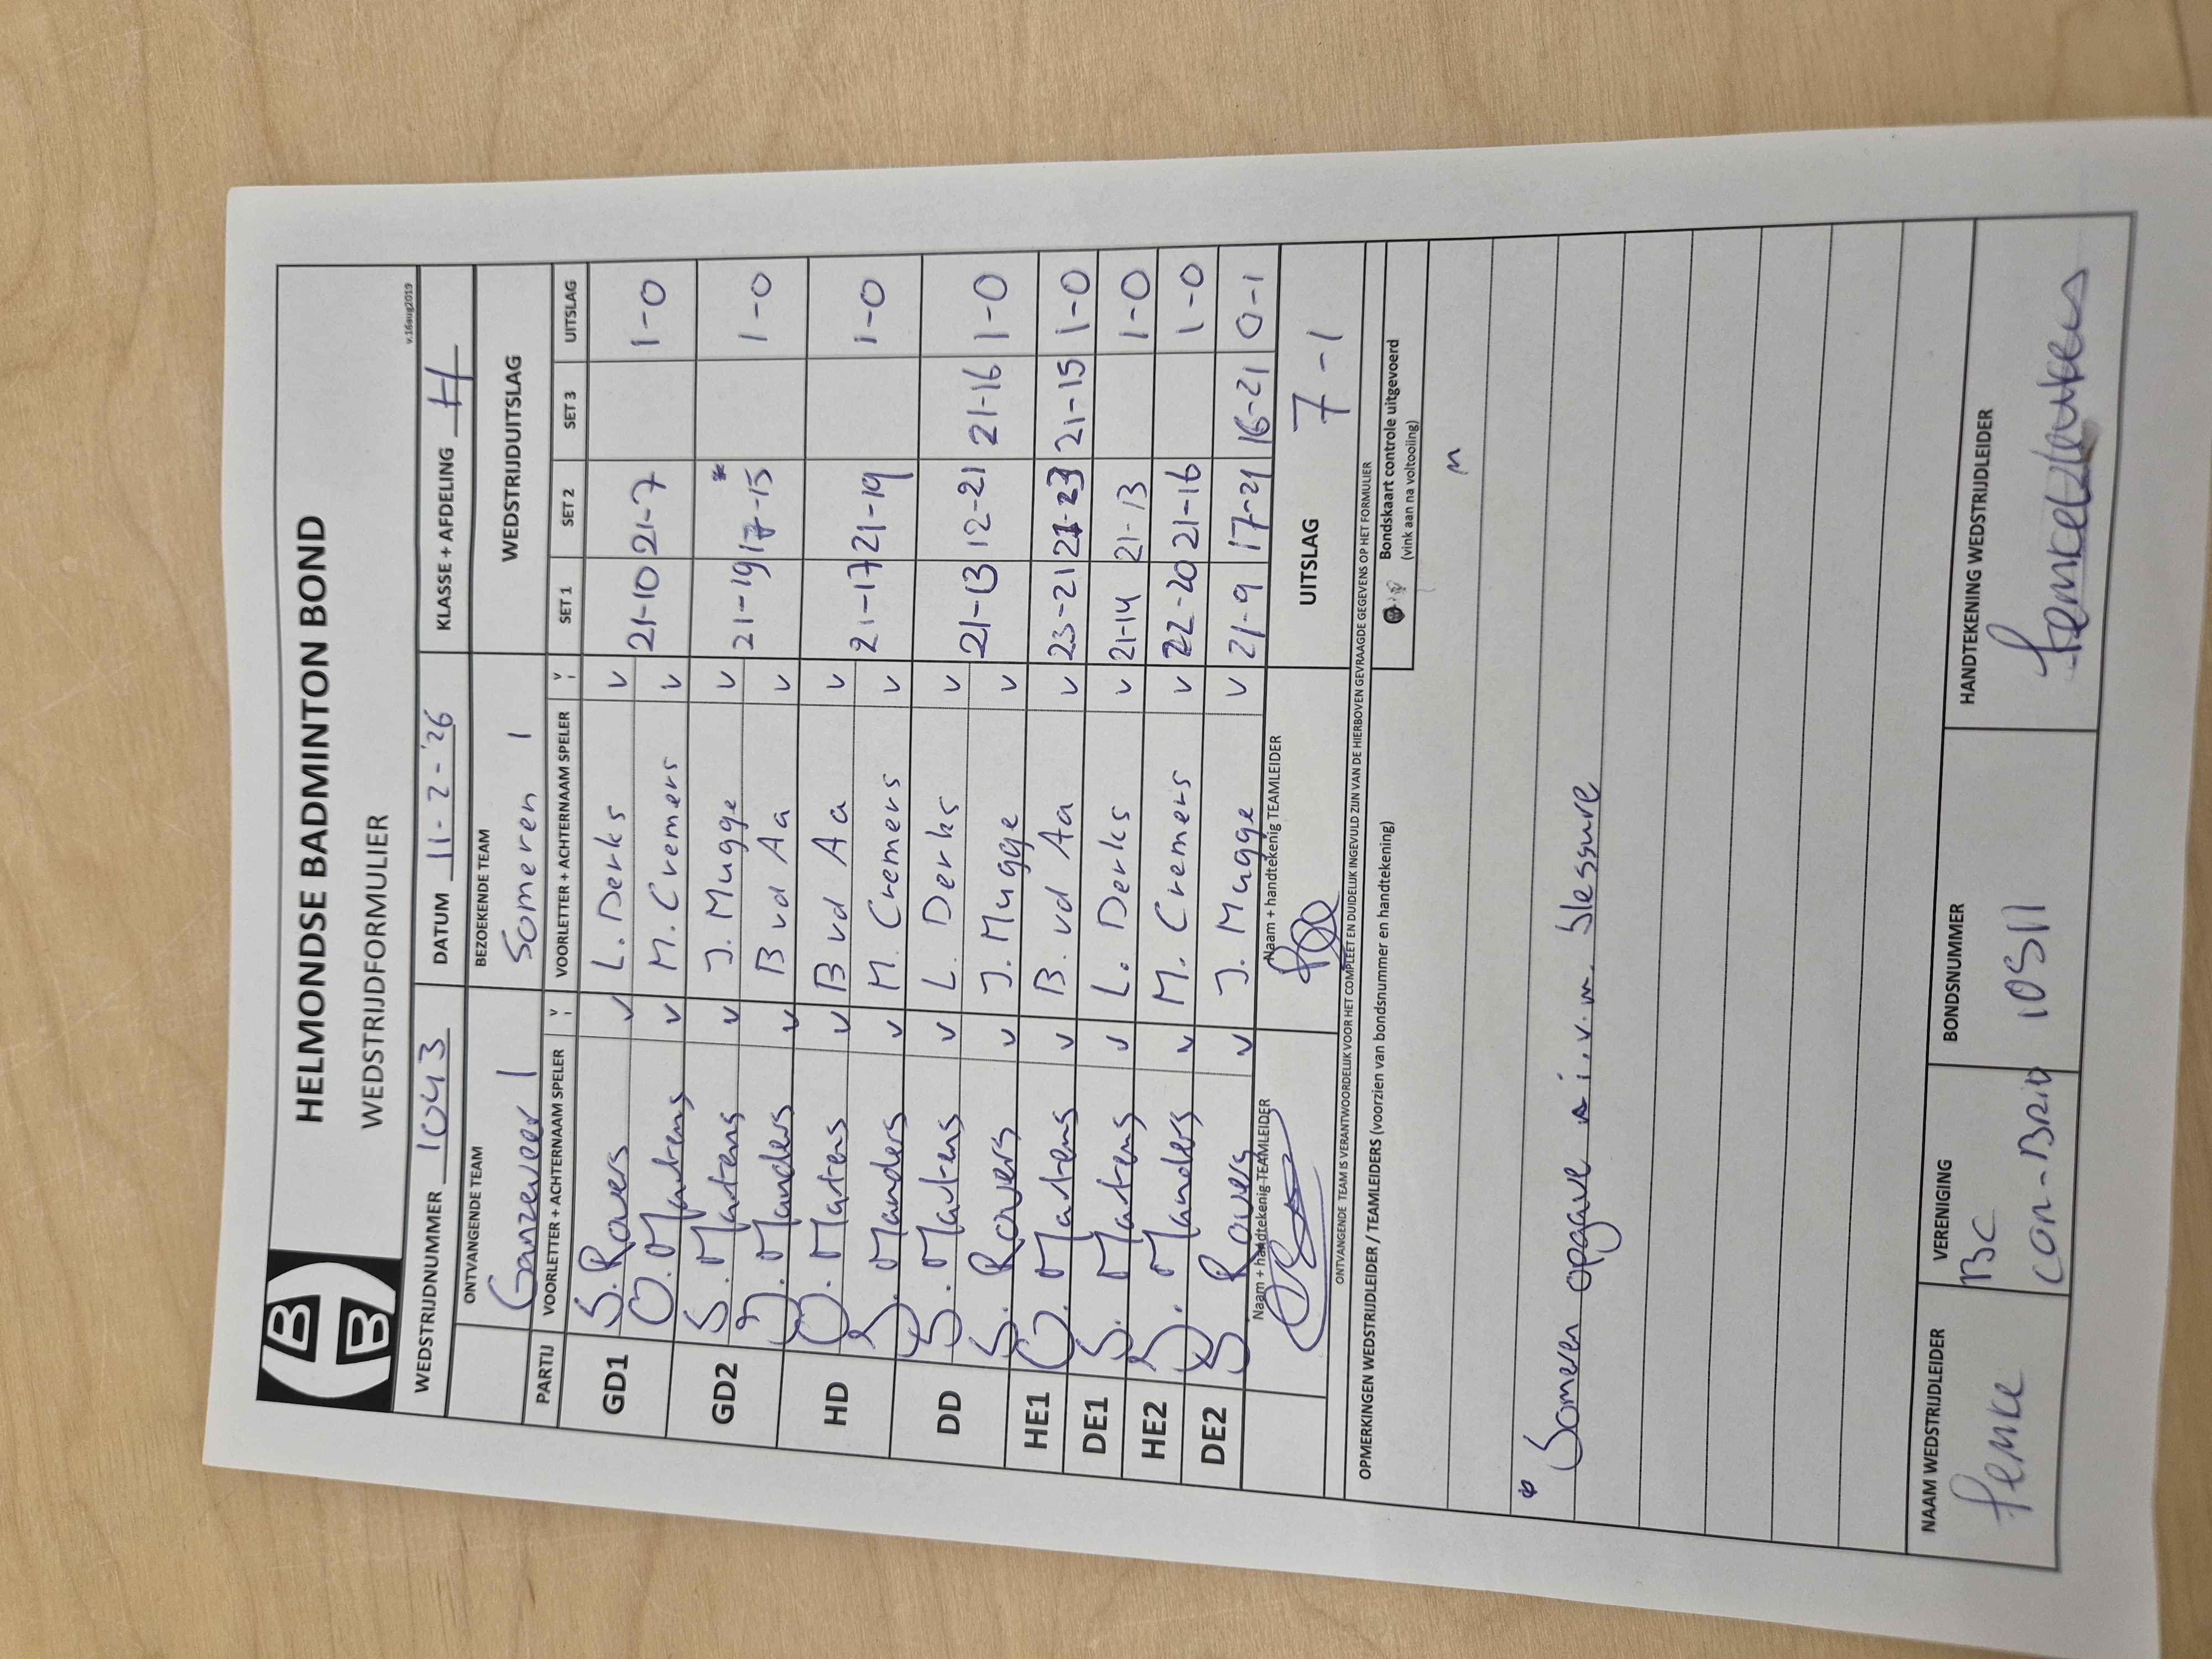 HBB
HELMONDSE BADMINTON BOND
WEDSTRIJDFORMULIER
v.16aug2019
WEDSTRIJDNUMMER 1043 DATUM 11-2-'26 KLASSE + AFDELING H
ONTVANGENDE TEAM BEZOEKENDE TEAM WEDSTRIJDUITSLAG
Ganzeveer 1 Someren 1
PARTIJ VOORLETTER + ACHTERNAAM SPELER V VOORLETTER + ACHTERNAAM SPELER V SET 1 SET 2 SET 3 UITSLAG
GD1 S. Rovers v L. Derks v
O. Martens v M. Cremers v 21-10 21-7 1-0
GD2 S. Martens v J. Mugge v
S. Manders v B vd Aa v 21-19 17-15* 1-0
HD O. Martens v B vd Aa v
S. Manders v M. Cremers v 21-17 21-19 1-0
DD S. Martens v L. Derks v
S. Rovers v J. Mugge v 21-13 12-21 21-16 1-0
HE1 O. Martens v B. vd Aa v 23-21 21-23 21-15 1-0
DE1 S. Martens v L. Derks v 21-14 21-13 1-0
HE2 S. Manders v M. Cremers v 22-20 21-16 1-0
DE2 S. Rovers v J. Mugge v 21-9 17-21 16-21 0-1
Naam + handtekenig TEAMLEIDER Naam + handtekenig TEAMLEIDER UITSLAG 7-1
ONTVANGENDE TEAM IS VERANTWOORDELIJK VOOR HET COMPLEET EN DUIDELIJK INGEVULD ZIJN VAN DE HIERBOVEN GEVRAAGDE GEGEVENS OP HET FORMULIER
OPMERKINGEN WEDSTRIJDLEIDER / TEAMLEIDERS (voorzien van bondsnummer en handtekening)
Bondskaart controle uitgevoerd
(vink aan na voltooiing)
* Someren opgave i.v.m. blessure
NAAM WEDSTRIJDLEIDER VERENIGING BONDSNUMMER HANDTEKENING WEDSTRIJDLEIDER
Femke BC Con-Brio 10511